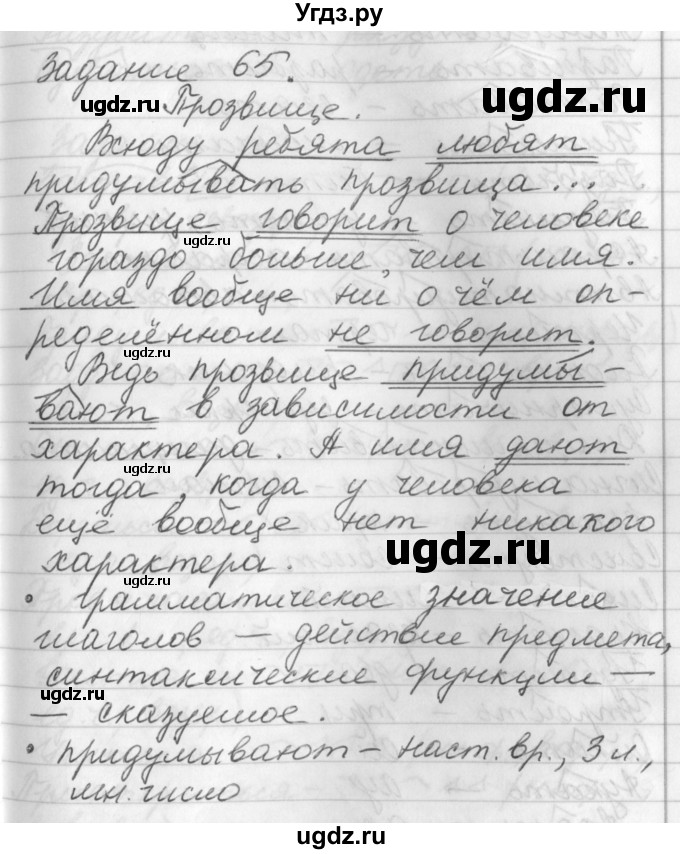 Угдз.ру
Задание 65.
ugdz.ru
ugdz.ru
Прозвище.
Всюду ребята любят
придумывать прозвища...
Прозвище говорит о человеке
ugdz.ru
гораздо больше, чем имя.
Имя вообще ни о чём оп-
ределённом не говорит.
ugdz.ru
Ведь прозвище придумы-
вают в зависимости от
характера. А имя дают
ugdz.ru
тогда, когда у человека
ещё вообще нет никакого
ugdz.ru
характера.
ugdz.ru
• грамматическое значение
глаголов — действие предмета,
синтаксические функции —
ugdz.ru
— сказуемое.
• придумывают — наст. вр., 3 л.,
мн. число
ugdz.ru